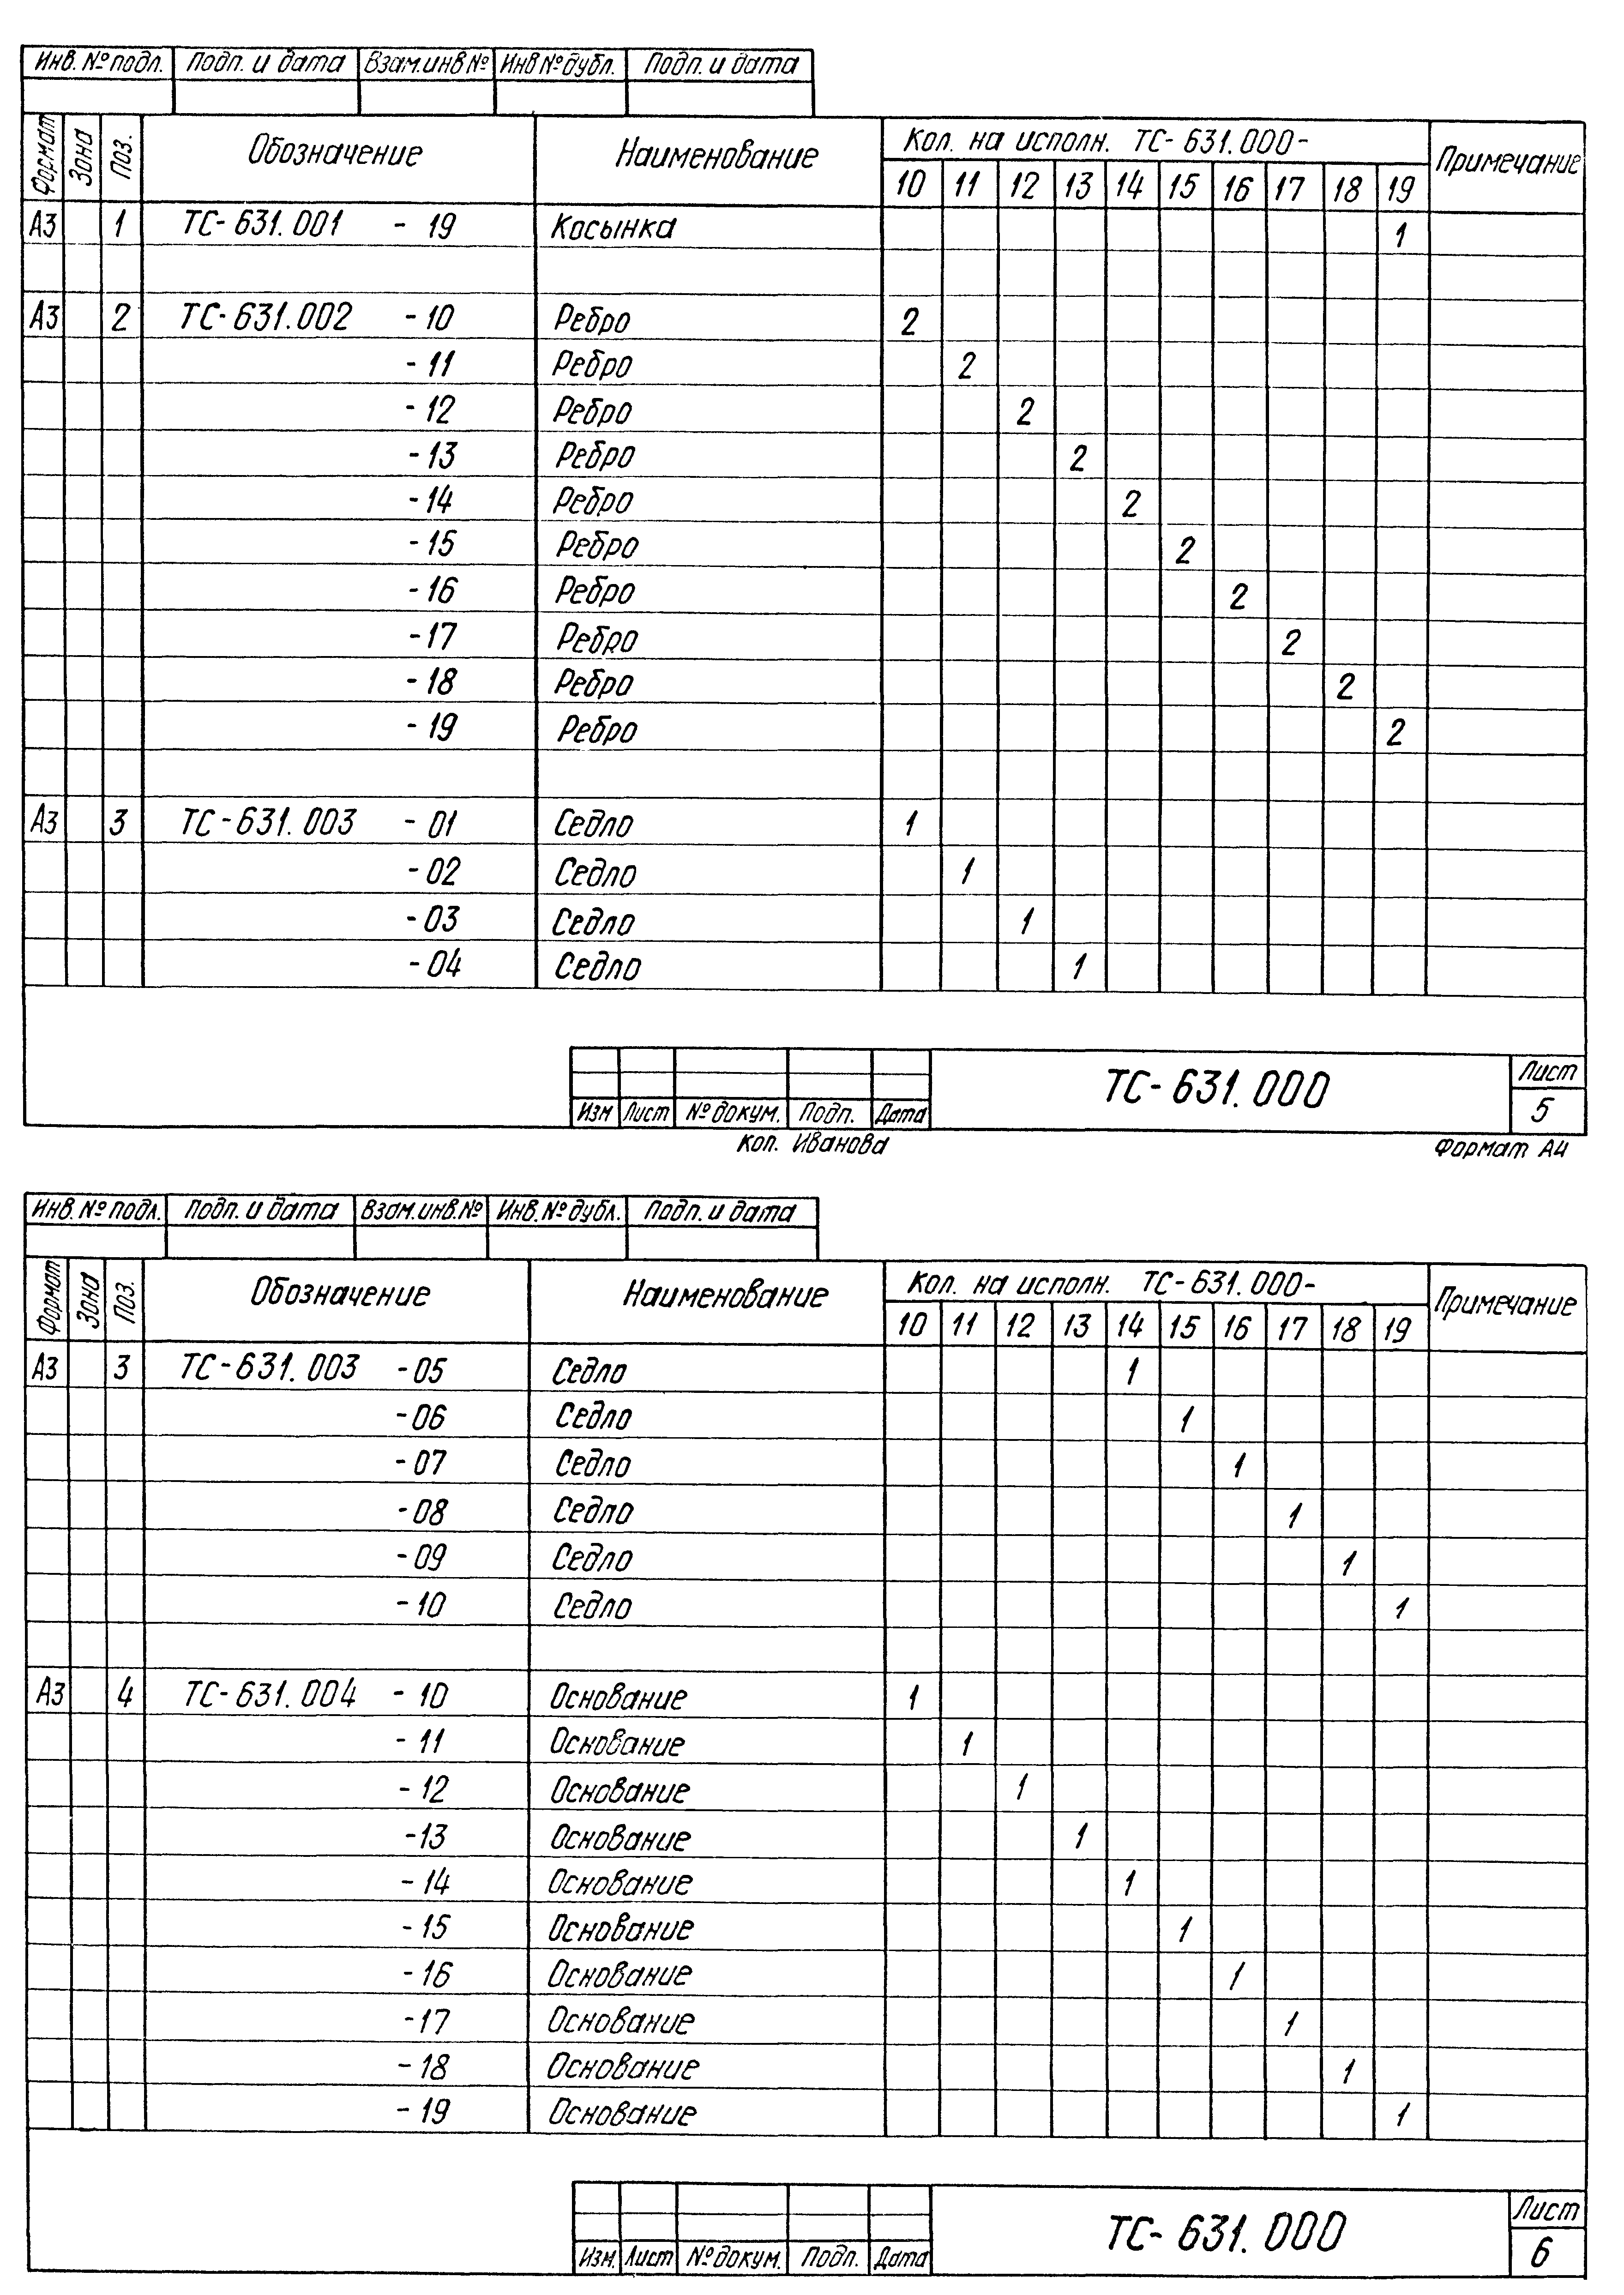 Инв. № подл. Подп. и дата Взам.инв № Инв № дубл. Подп. и дата
Формат Зона Поз. Обозначение Наименование Кол. на исполн. ТС-631.000- Примечание
10 11 12 13 14 15 16 17 18 19
А3 1 ТС-631.001 -19 Косынка 1
А3 2 ТС-631.002 -10 Ребро 2
-11 Ребро 2
-12 Ребро 2
-13 Ребро 2
-14 Ребро 2
-15 Ребро 2
-16 Ребро 2
-17 Ребро 2
-18 Ребро 2
-19 Ребро 2
А3 3 ТС-631.003 -01 Седло 1
-02 Седло 1
-03 Седло 1
-04 Седло 1
ТС-631.000 Лист
Изм Лист № докум. Подп. Дата 5
Коп. Иванова Формат А4
Инв. № подл. Подп. и дата Взам.инв.№ Инв.№ дубл. Подп. и дата
Формат Зона Поз. Обозначение Наименование Кол. на исполн. ТС-631.000- Примечание
10 11 12 13 14 15 16 17 18 19
А3 3 ТС-631.003 -05 Седло 1
-06 Седло 1
-07 Седло 1
-08 Седло 1
-09 Седло 1
-10 Седло 1
А3 4 ТС-631.004 -10 Основание 1
-11 Основание 1
-12 Основание 1
-13 Основание 1
-14 Основание 1
-15 Основание 1
-16 Основание 1
-17 Основание 1
-18 Основание 1
-19 Основание 1
ТС-631.000 Лист
Изм. Лист № докум. Подп. Дата 6